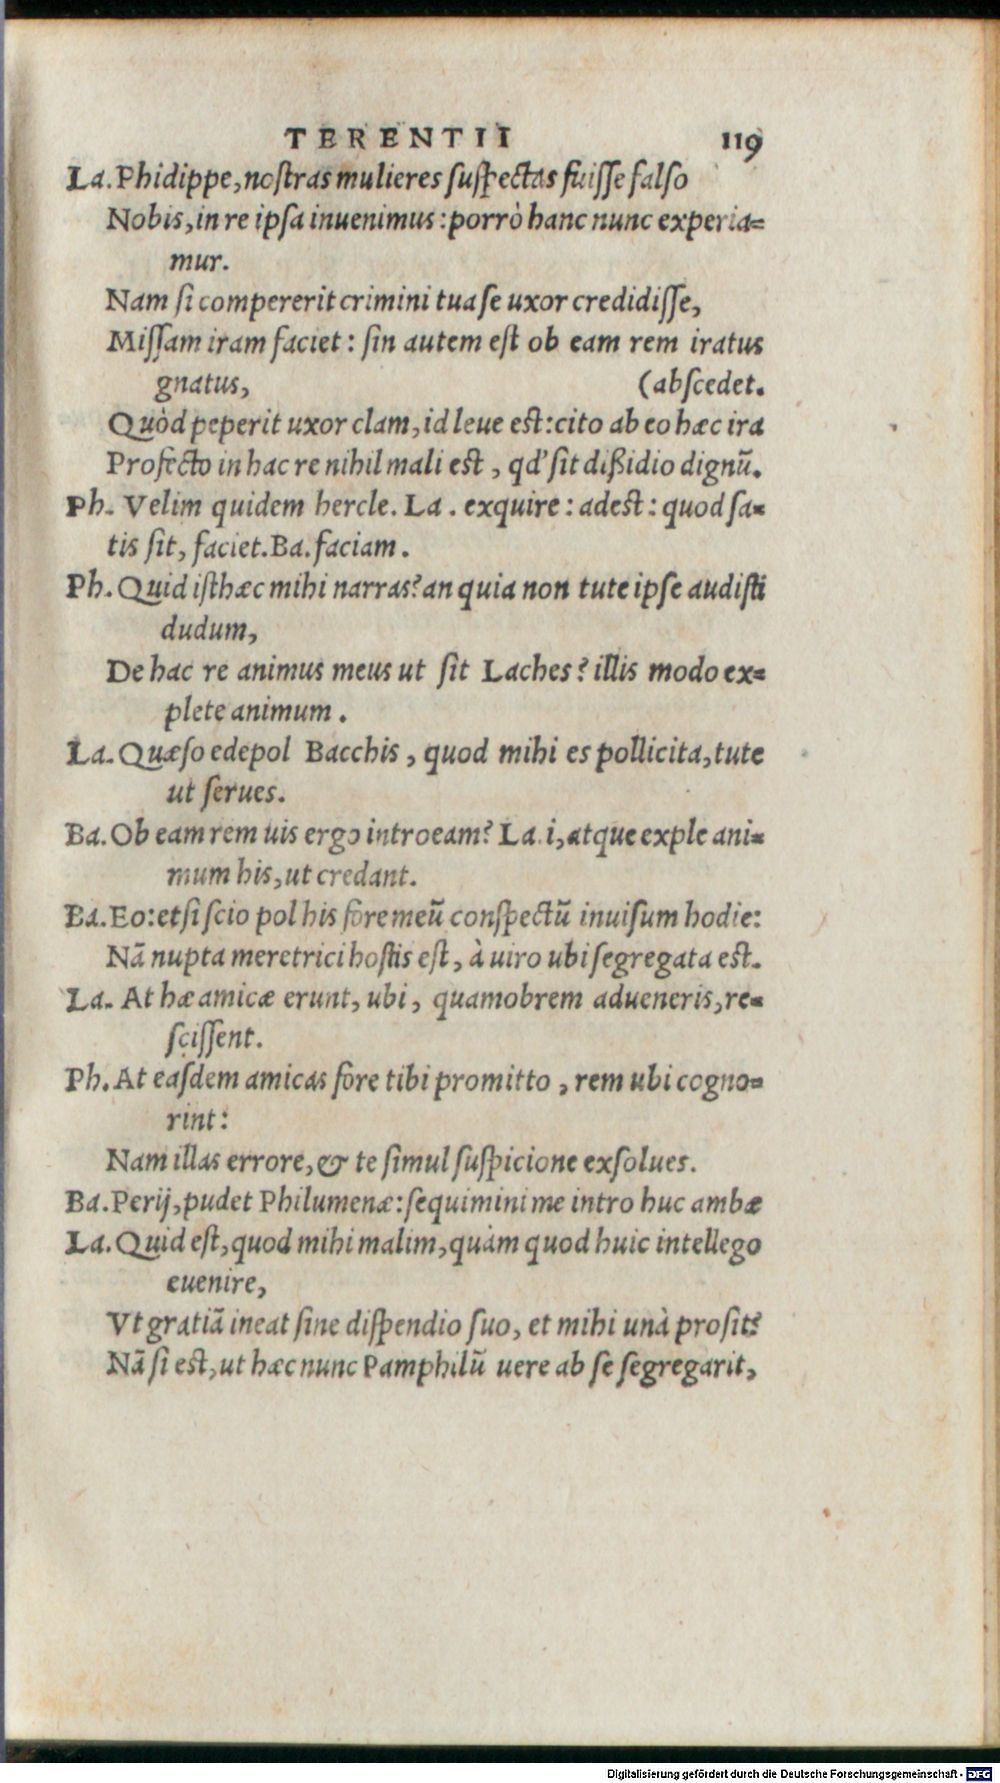 TERENTII 119
La. Phidippe, nostras mulieres suspectas fuisse falso
Nobis, in re ipsa inuenimus: porrò hanc nunc experia=
mur.
Nam si compererit crimini tua se uxor credidisse,
Missam iram faciet: sin autem est ob eam rem iratus
gnatus, (abscedet.
Quòd peperit uxor clam, id leue est: cito ab eo hæc ira
Profecto in hac re nihil mali est, qd' sit dißidio dignũ.
Ph. Velim quidem hercle. La. exquire: adest: quod sa=
tis sit, faciet. Ba. faciam.
Ph. Quid isthæc mihi narras? an quia non tute ipse audisti
dudum,
De hac re animus meus ut sit Laches? illis modo ex=
plete animum.
La. Quæso edepol Bacchis, quod mihi es pollicita, tute
ut serues.
Ba. Ob eam rem uis ergo introeam? La. i, atque exple ani=
mum his, ut credant.
Ba. Eo: etsi scio pol his fore meũ conspectũ inuisum hodie:
Nã nupta meretrici hostis est, à uiro ubi segregata est.
La. At hæ amicæ erunt, ubi, quamobrem adueneris, re=
scissent.
Ph. At easdem amicas fore tibi promitto, rem ubi cogno=
rint:
Nam illas errore, & te simul suspicione exsolues.
Ba. Perij, pudet Philumenæ: sequimini me intro huc ambæ
La. Quid est, quod mihi malim, quàm quod huic intellego
euenire,
Vt gratiã ineat sine dispendio suo, et mihi unà prosit?
Nã si est, ut hæc nunc Pamphilũ uere ab se segregarit,
Digitalisierung gefördert durch die Deutsche Forschungsgemeinschaft - DFG